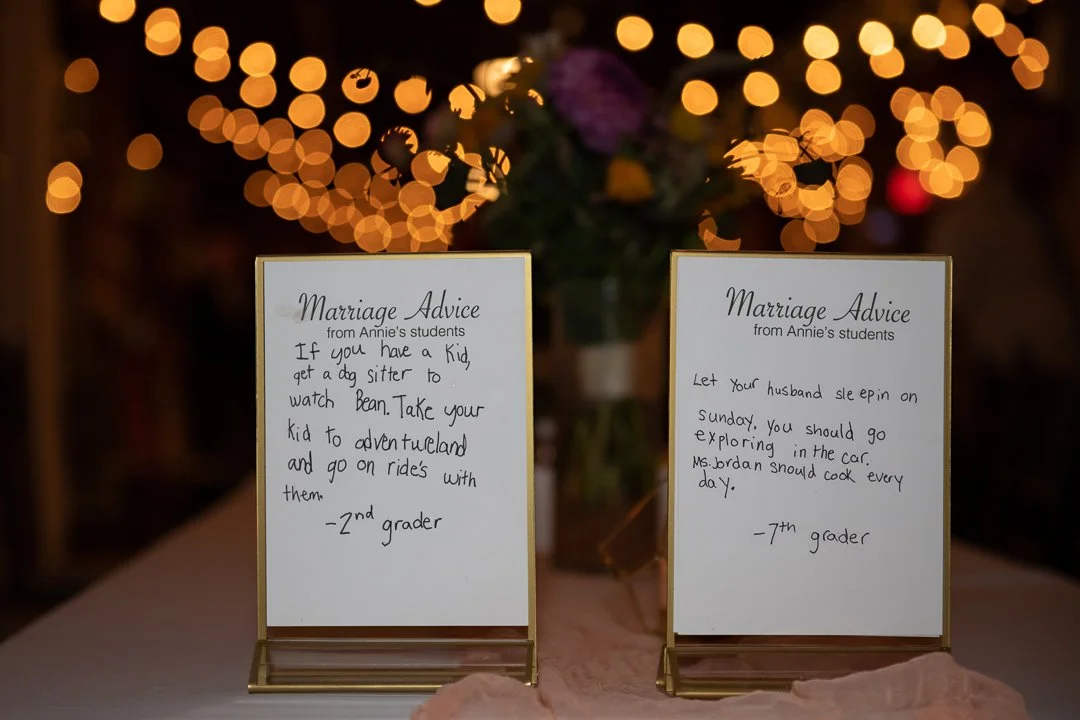 Marriage Advice
from Annie's students
If you have a Kid,
get a dog sitter to
watch Bean. Take your
Kid to adventureland
and go on ride's with
them.
-2nd grader
Marriage Advice
from Annie's students
Let Your husband sleepin on
sunday. you should go
exploring in the car.
Ms. Jordan should cook every
day.
-7th grader